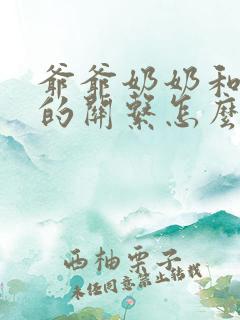 爷爷奶奶和
的關繫怎麽
西柚栗子
未经同意禁止转载